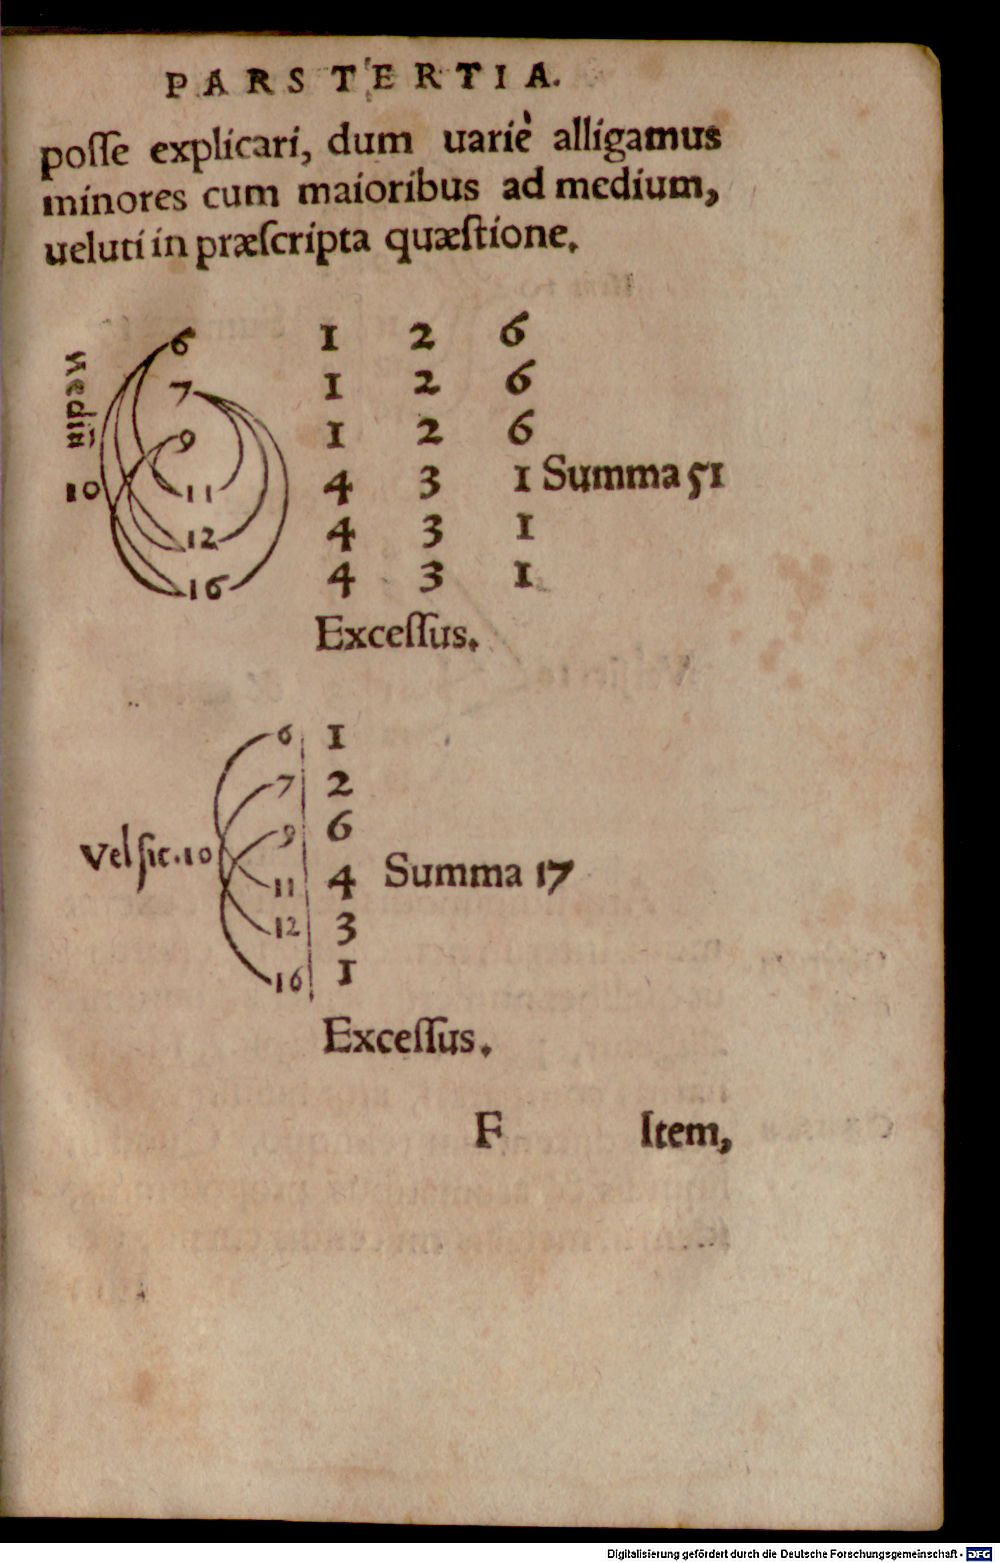 PARS TERTIA.
poſſe explicari, dum uariè alligamus
minores cum maioribus ad medium,
ueluti in præſcripta quæſtione.
Mediũ
10
6 1 2 6
7 1 2 6
9 1 2 6
11 4 3 1 Summa 51
12 4 3 1
16 4 3 1
Exceſſus.
Vel ſic. 10
6 1
7 2
9 6
11 4 Summa 17
12 3
16 1
Exceſſus.
F Item,
Digitalisierung gefördert durch die Deutsche Forschungsgemeinschaft - DFG